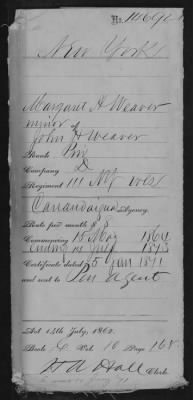 No. 
New York
Margaret A Weaver
minor of
John H Weaver
Rank Pri
Company D
Regiment 111 NY Vols
Canandaigua Agency.
Rate per month $8
Commencing 18 May 1864
ending
Certificate dated 25 Jan 1871
and sent to Pen Agent
Act 14th July, 1862.
Book Vol. Page 168
Clerk.